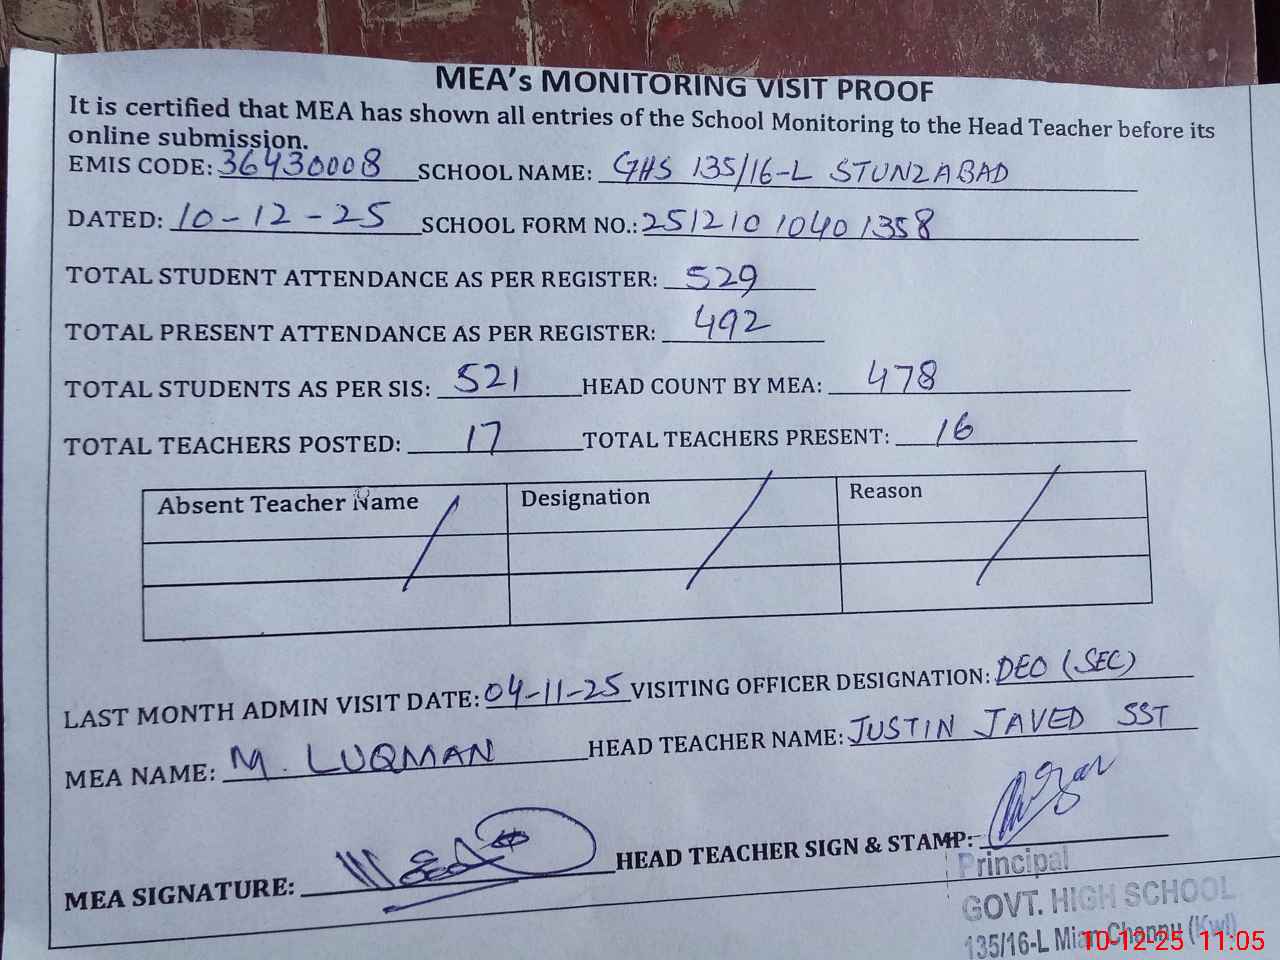 MEA's MONITORING VISIT PROOF
It is certified that MEA has shown all entries of the School Monitoring to the Head Teacher before its
online submission.
EMIS CODE: 36430008 SCHOOL NAME: GHS 135/16-L STUNZABAD
DATED: 10-12-25 SCHOOL FORM NO.: 25121010401358
TOTAL STUDENT ATTENDANCE AS PER REGISTER: 529
TOTAL PRESENT ATTENDANCE AS PER REGISTER: 492
TOTAL STUDENTS AS PER SIS: 521 HEAD COUNT BY MEA: 478
TOTAL TEACHERS POSTED: 17 TOTAL TEACHERS PRESENT: 16
Absent Teacher Name Designation Reason
LAST MONTH ADMIN VISIT DATE: 04-11-25 VISITING OFFICER DESIGNATION: DEO (SEC)
MEA NAME: M. LUQMAN HEAD TEACHER NAME: JUSTIN JAVED SST
MEA SIGNATURE: HEAD TEACHER SIGN & STAMP:
Principal
GOVT. HIGH SCHOOL
135/16-L Mian Channu (Kwl)
10-12-25 11:05